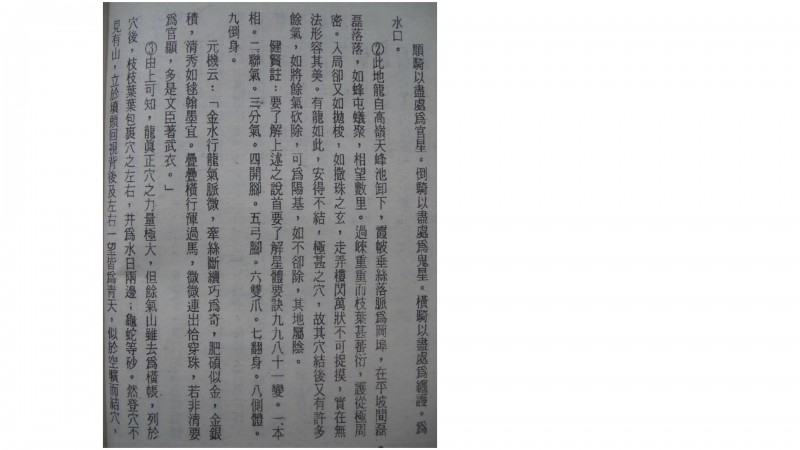 順騎以盡處爲官星。倒騎以盡處爲鬼星。橫騎以盡處爲纏護。爲
水口。
②此地龍自高嶺天峰池卸下，霞帔垂絲落脈爲岡埠，在平坡間磊
磊落落，如蜂屯蟻聚，相望數里。過峽重重而枝葉甚蕃衍，護從極周
密。入局卻又如拋梭，如撒珠之玄，走弄樓閃萬狀不可捉摸，實在無
法形容其美。有龍如此，安得不結，極甚之穴，故其穴結後又有許多
餘氣，如將餘氣砍除，可爲陽基，如不卻除，其地屬陰。
健賢註：要了解上述之說首要了解星體要訣九九八十一變。一、本
相。二聯氣。三分氣。四開腳。五弓腳。六雙爪。七翻身。八側體。
九倒身。
元機云：「金水行龍氣脈微，牽絲斷續巧爲奇，肥碩似金，金銀
積，清秀如毬翰墨宜。疊疊橫行渾過馬，微微連出恰穿珠，若非清要
爲官顯，多是文臣著武衣。」
③由上可知，龍眞正穴之力量極大，但餘氣山雖去爲橫帳，列於
穴後，枝枝葉葉包裹穴之左右，并爲水日兩邊；龜蛇等砂。然登穴不
見有山，立於墳頭回視背後及左右一望皆爲青天，似於空曠而結穴，